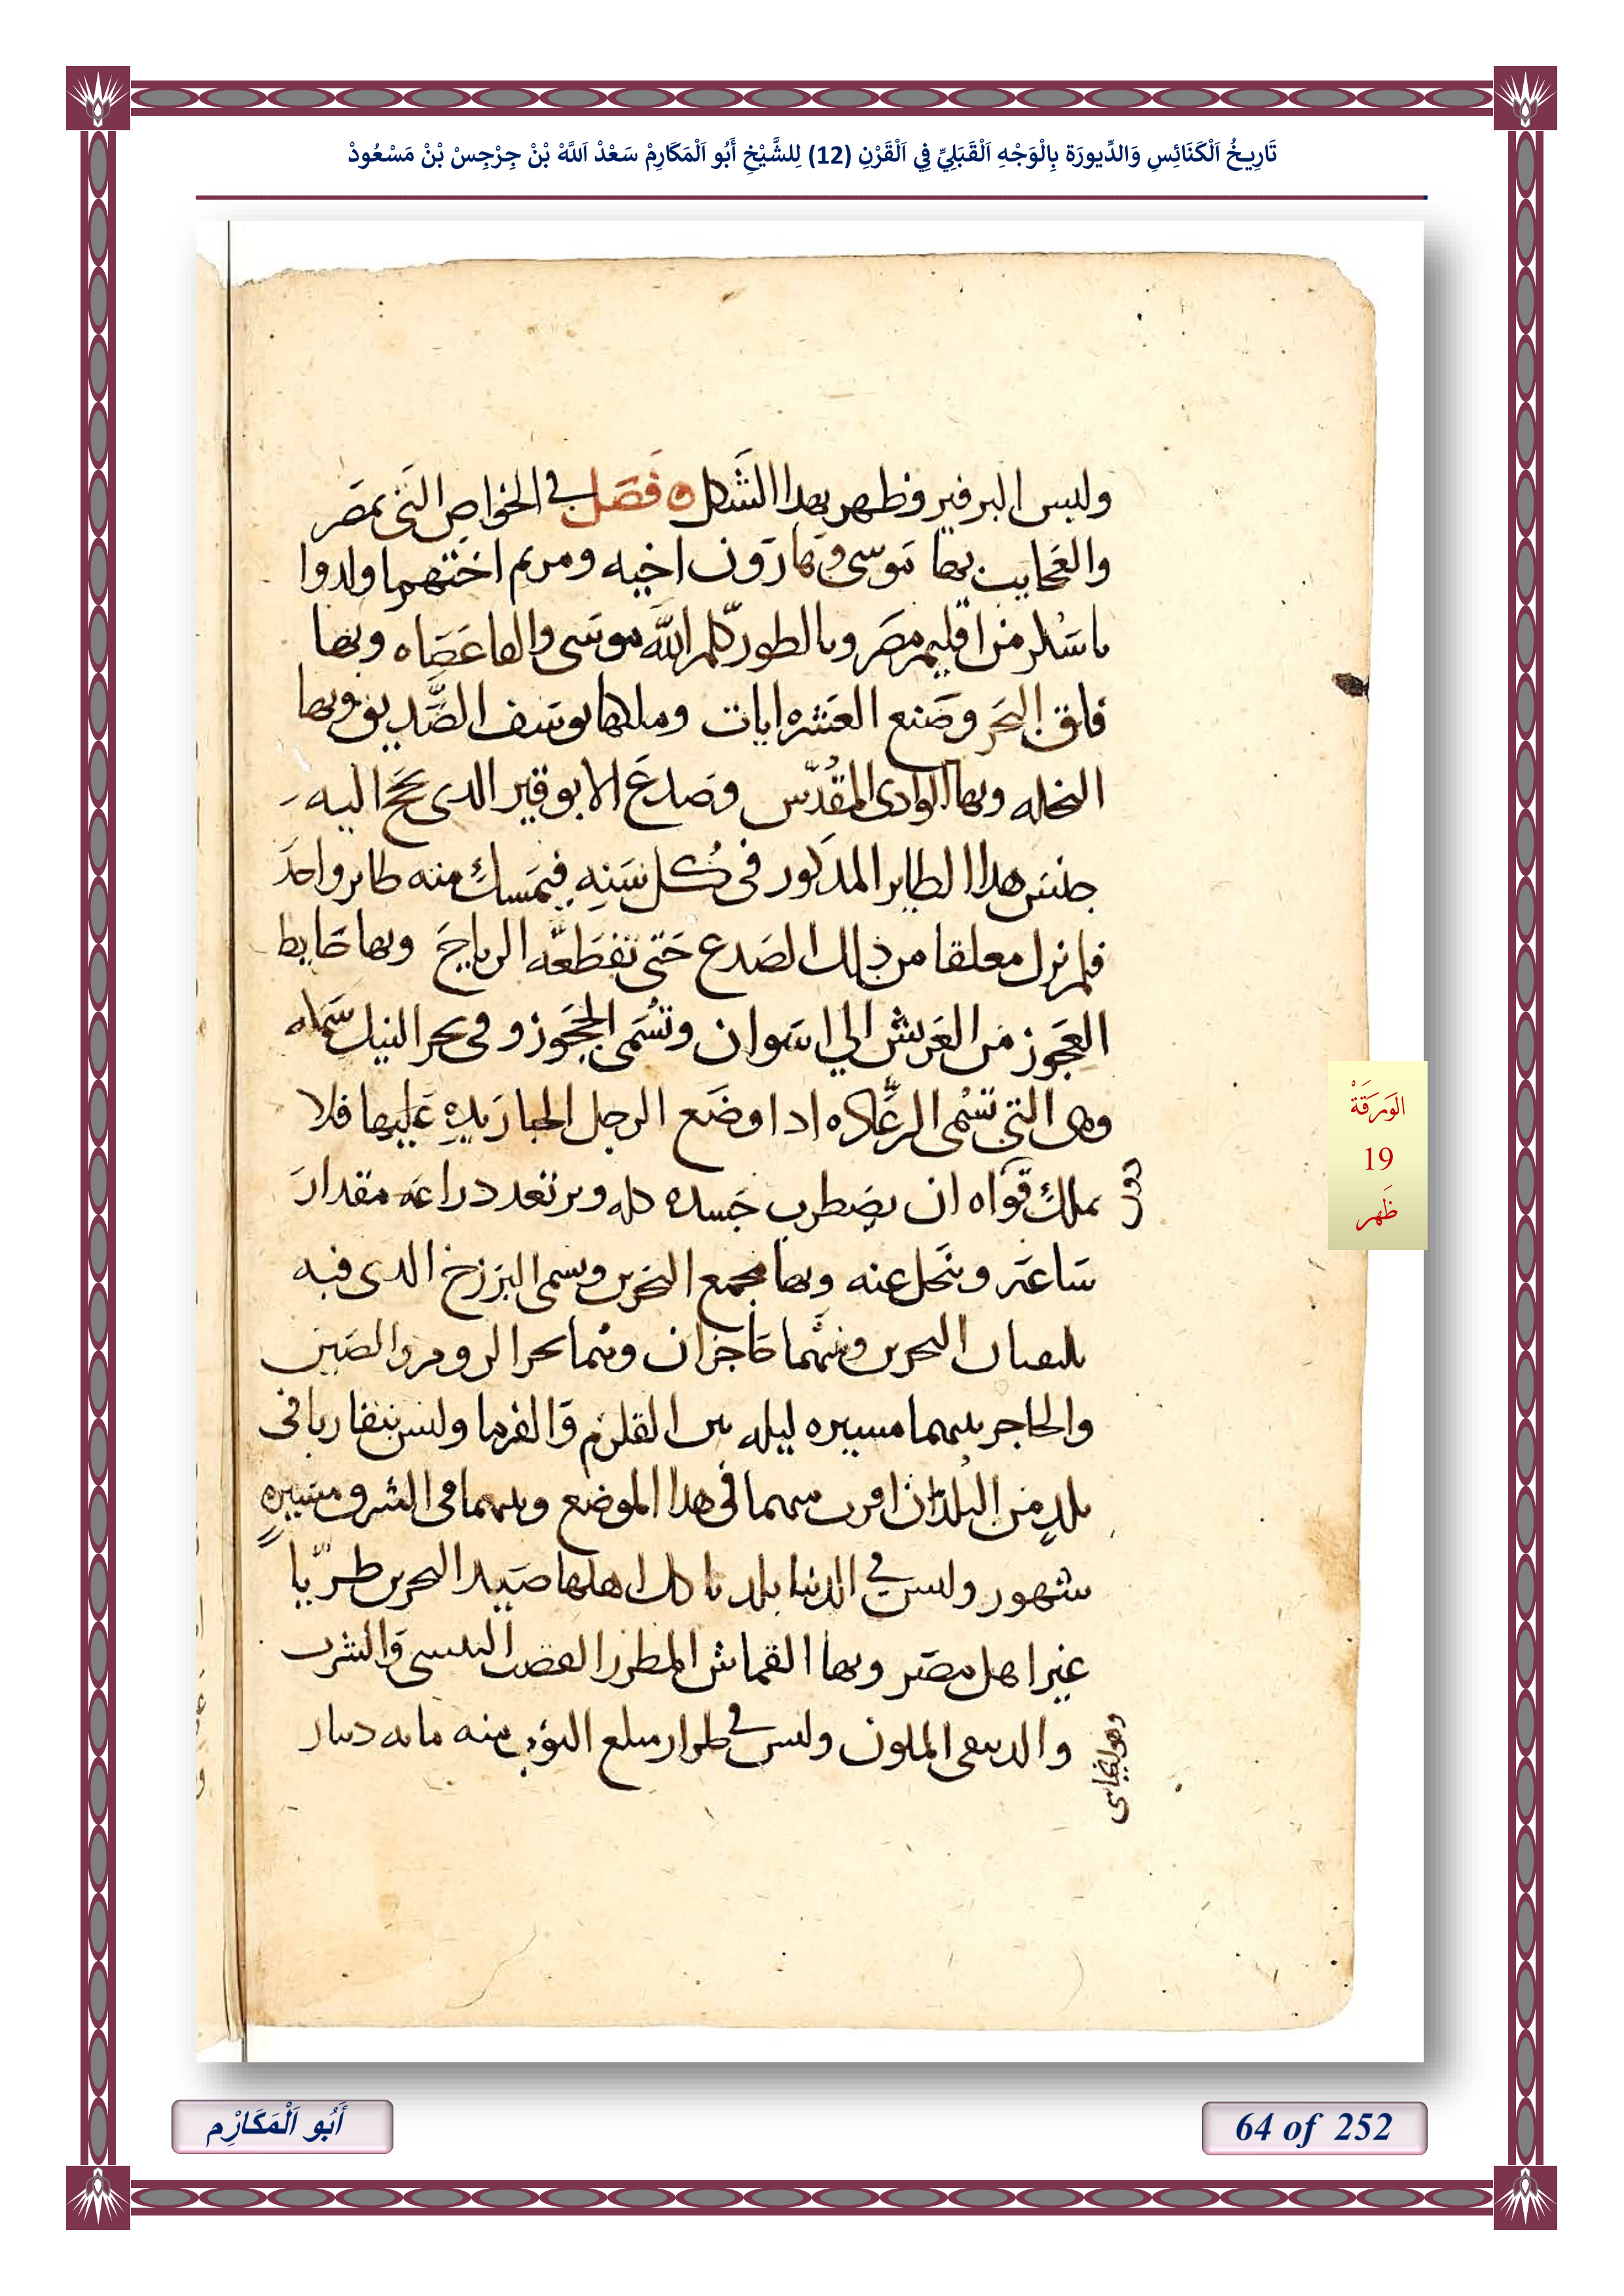 تَارِيخُ اَلْكَنَائِسِ وَالدِّيورَة بِالْوَجْهِ اَلْقَبَلِيِّ فِي اَلْقَرْنِ (12) لِلشَّيْخِ أَبُو اَلْمَكَارِمْ سَعْدْ اَللَّهْ بْنْ جِرْجِسْ بْنْ مَسْعُودْ
ولبس البرفير وظهر بهدا الشكل ه فصل في الخواص التى بمصر
والعجايب بها موسى وهارون اخيه ومريم اختهما ولدوا
باسكر من اقليم مصر وبالطور كلم الله موسى والقا عصاه وبها
فلق البحر وصنع العشره ايات وملكها يوسف الصديق وبها
النخله وبها الوادى المقدس وصدع الابوقير الدى يحج اليه
جنس هدا الطاير المدكور فى كل سنه فيمسك منه طاير واحد
فلم نزل معلقا من ذلك الصدع حتى تقطعه الرياح وبها حايط
العجوز من العريش الي اسوان وتسمى الحجوز وفى بحر النيل سمكه
وهى التى تسمى الرعاده ادا وضع الرجل الجبار يده عليها فلا
يملك قواه ان يضطرب جسده كله وترتعد دراعه مقدار
دون
ساعه وينحل عنه وبها مجمع البحرين ويسمى البرزخ الدى فيه
يلتقيان البحرين وبينهما حاجزان وهما بحر الروم والصين
والحاجر بينهما مسيره ليله بين القلزم والفرما وليس يتقاربا فى
بلد من البلدان اقرب منهما فى هدا الموضع وبينهما فى الشرق مسيره
شهور وليس في الدنيا بلد ياكل اهلها صيد البحرين طريا
غير اهل مصر وبها القماش المطرز القصب التنيسى والشرب
والدبيقى الملون وليس في طراز مبلغ الثوب منه مايه دينار
الوَرَقَةْ
19
ظَهر
أَبُو اَلْمَكَارِْم
64 of 252